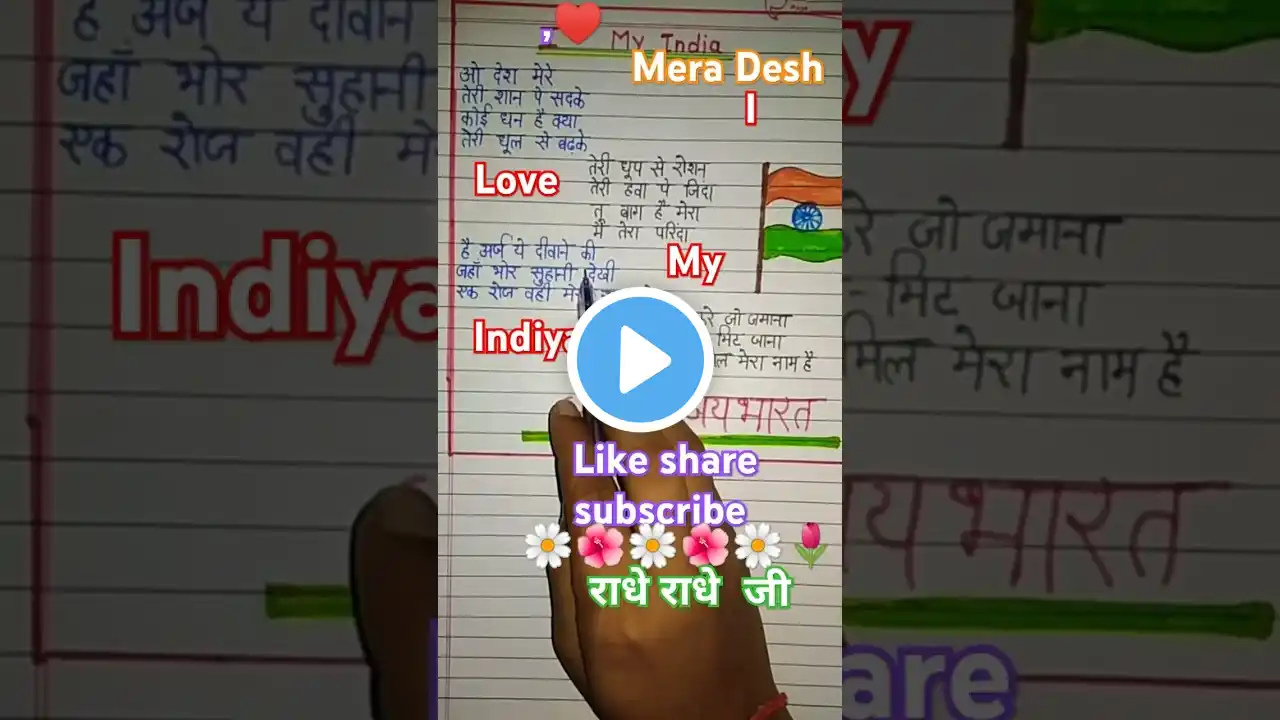 My India
Mera Desh
I
ओ देश मेरे
तेरी शान पे सदके
कोई धन है क्या
तेरी धूल से बढ़के
Love
तेरी धूप से रोशन
तेरी हवा पे जिंदा
तू बाग है मेरा
मैं तेरा परिंदा
My
है अर्ज ये दीवाने की
जहाँ भोर सुहानी देखी
एक रोज वहीं
Indiya
जो जमाना
मिट जाना
मेरा नाम है
जय भारत
Like share
subscribe
राधे राधे जी